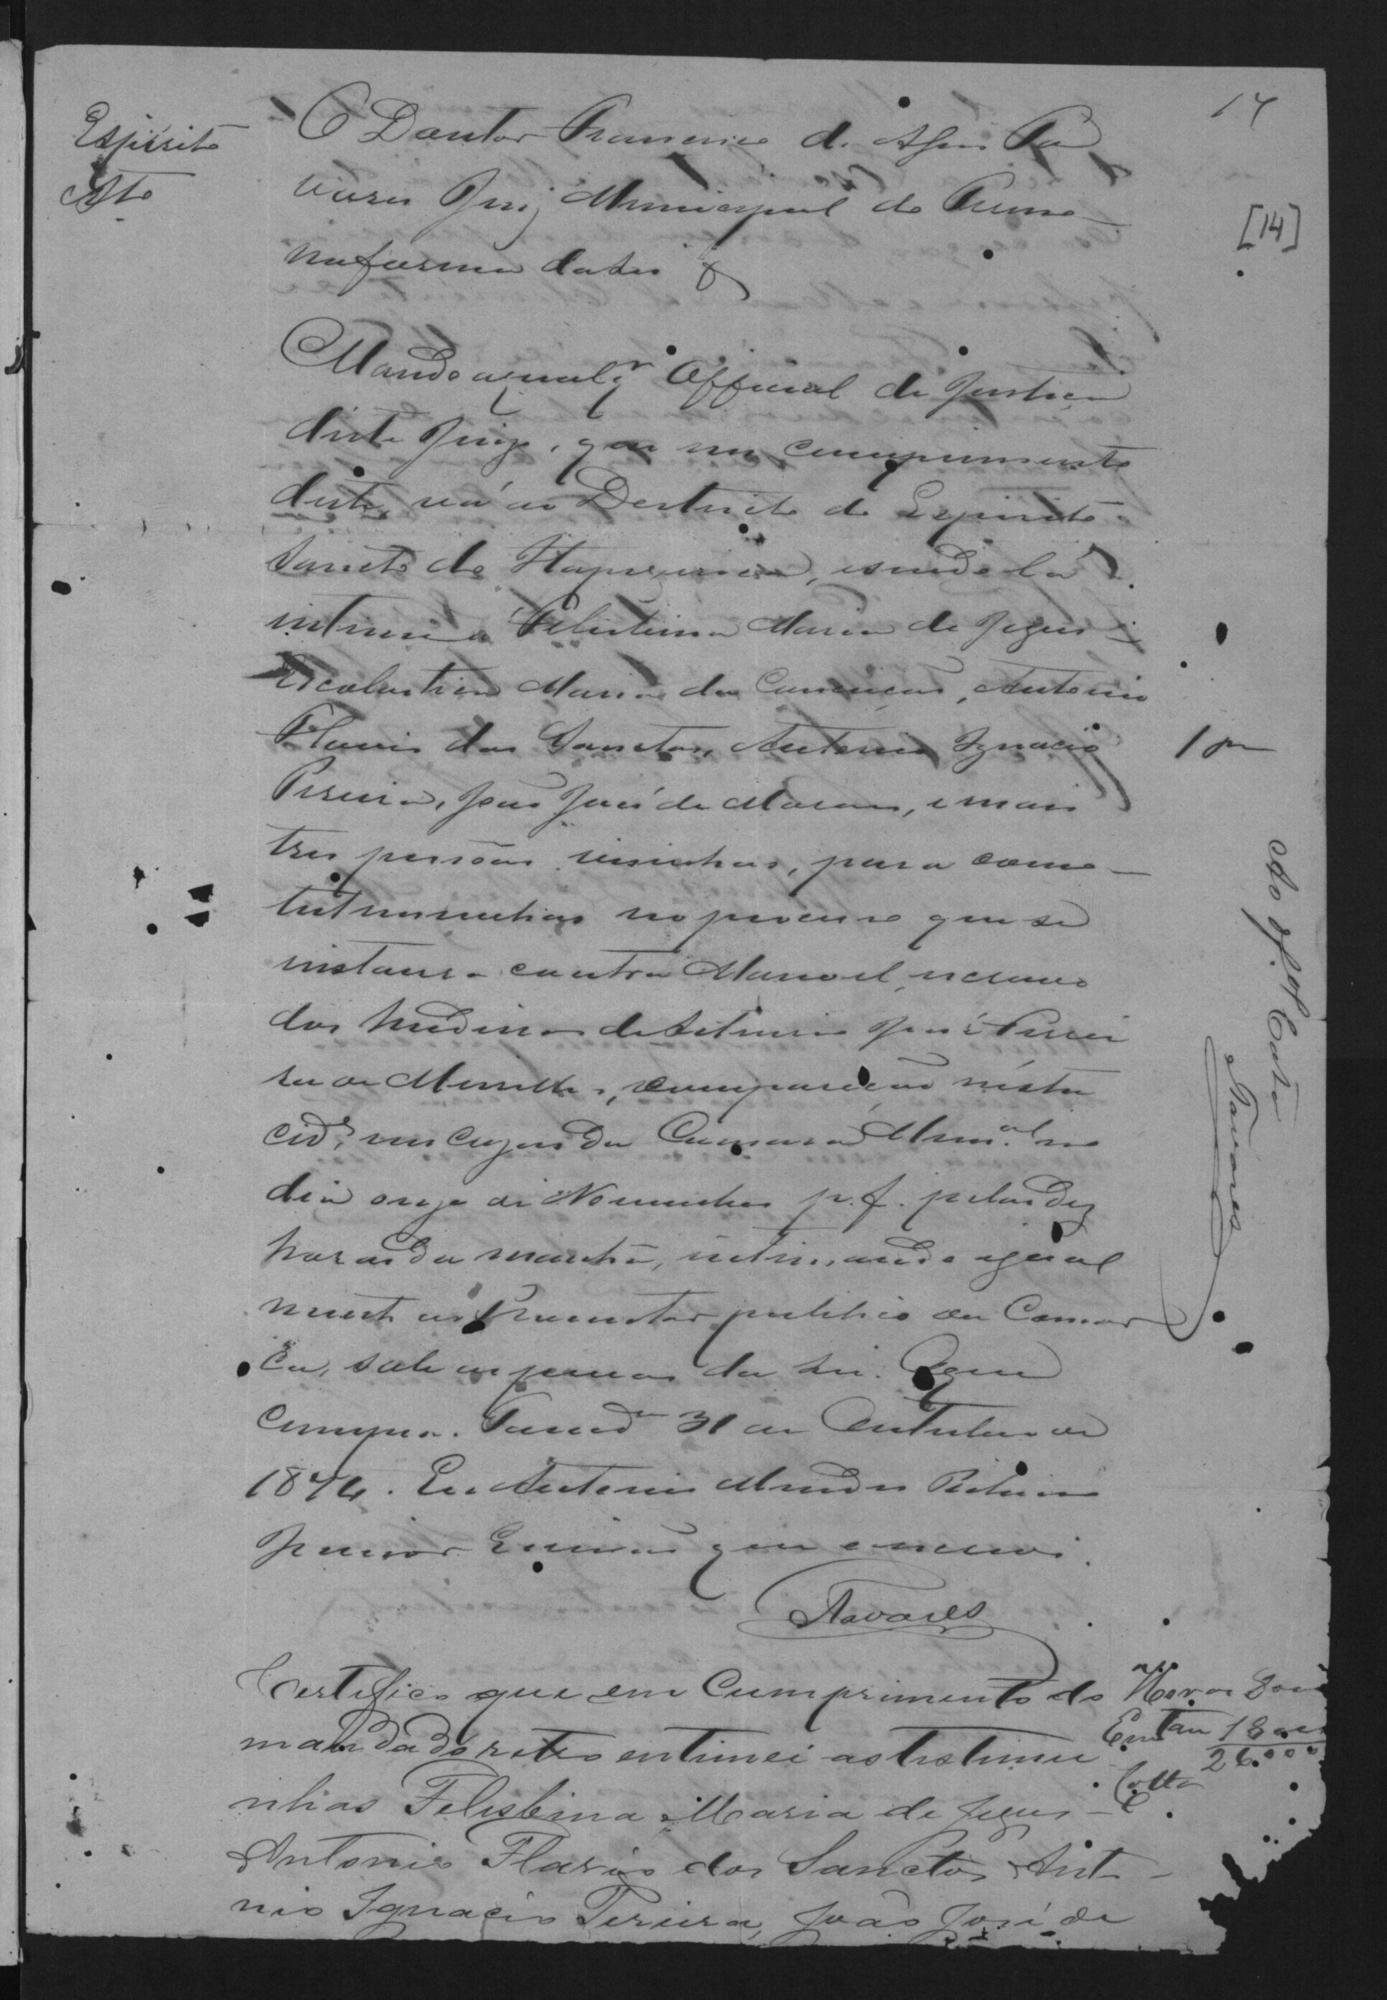 14
[14]
Espirito
Sto
O Doutor Francisco de Assis Ta
vares Juiz Municipal do Termo
na forma da Lei &
Mando a qualqr Official de Justiça
deste Juizo, que em cumprimento
deste, vá ao Destricto do Espirito
Sancto de Itapecerica, e sendo lá
intime a Felisbina Maria de Jezus
Escolastica Maria da Conceição, Antonio
Flavio dos Sanctos, Antonio Ignacio
Pereira, João José de Moraes, e mais
tres pessôas visinhas, para como
testimunhas no processo que se
instaura contra Manoel, escravo
dos herdeiros de Antonio José Perei
ra de Mello, compareção nésta
cide, nos Paços da Camara Munal no
dia onze de Novembro p. f. pelas dez
horas da manhã, intimando igual
mente ao Promotor publico da Comar
ca, sob as penas da lei. O que
cumpra. Tamdua 31 de Outubro de
1874. Eu Antonio Mendes Ribeiro
Junior Escrivão que escrevi.
Tavares
1 pr
Ao Of. Catão
Tavares
Certifico que em Cumprimento do
mandado retro entimei as testimu
nhas Felisbina Maria de Jezus
Antonio Flavio dos Sanctos Anto
nio Ignacio Pereira, João José de
18000
26.000